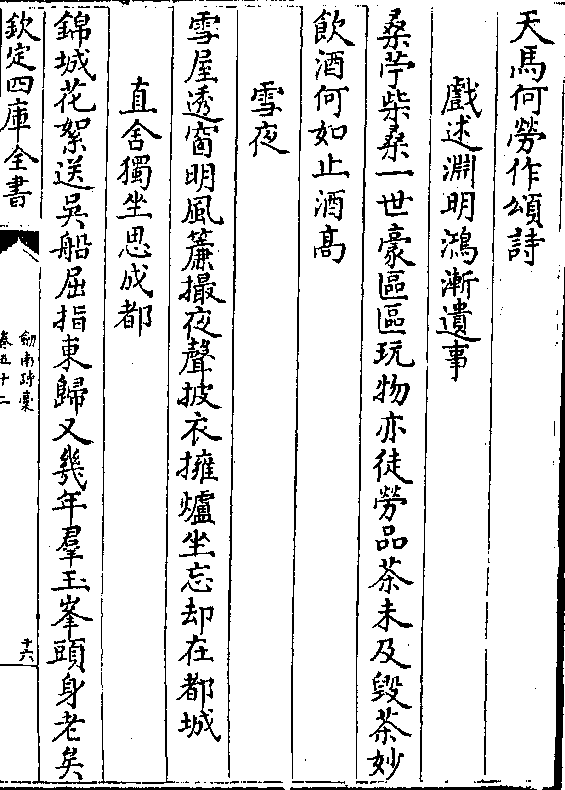 天馬何勞作頌詩
戲述淵明鴻漸遺事
桑苧柴桑一世豪區區玩物亦徒勞品茶未及毀茶妙
飲酒何如止酒高
雪夜
雪屋透窗明風簾撮夜聲披衣擁爐坐忘却在都城
直舍獨坐思成都
錦城花絮送吳船屈指東歸又幾年羣玉峯頭身老矣
欽定四庫全書
劒南詩稾
卷五十二
十六